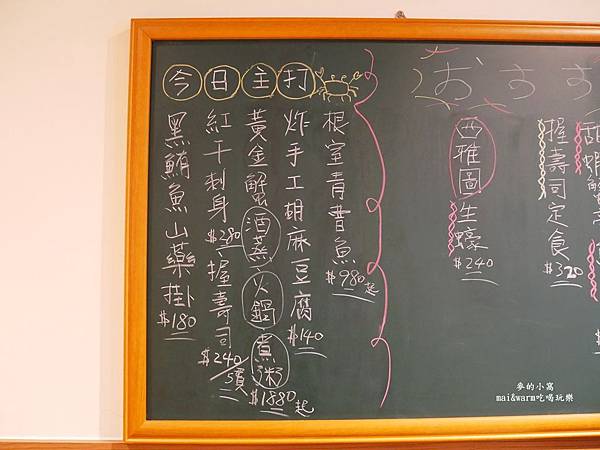 今日主打
根室青曹魚
$980起
炸手工胡麻豆腐
$140
黃金蟹酒蒸、火鍋
煮粥
$1880起
紅干刺身
$280
握壽司
$240/5貫
黑鮪魚山藥掛
$180
おすす
握壽司定食
$320
西雅圖生蠔
$240
麥的小窩
mai&warm吃喝玩樂